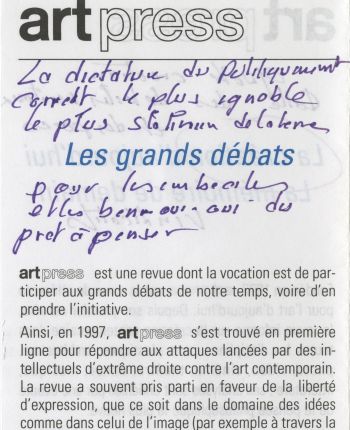 art press
La dictature du Politiquement
Correct le plus ignoble
le plus
Les grands débats
pour les imbeciles
et les
pret à penser
art press est une revue dont la vocation est de par-
ticiper aux grands débats de notre temps, voire d'en
prendre l'initiative.
Ainsi, en 1997, art press s'est trouvé en première
ligne pour répondre aux attaques lancées par des in-
tellectuels d'extrême droite contre l'art contemporain.
La revue a souvent pris parti en faveur de la liberté
d'expression, que ce soit dans le domaine des idées
comme dans celui de l'image (par exemple à travers la